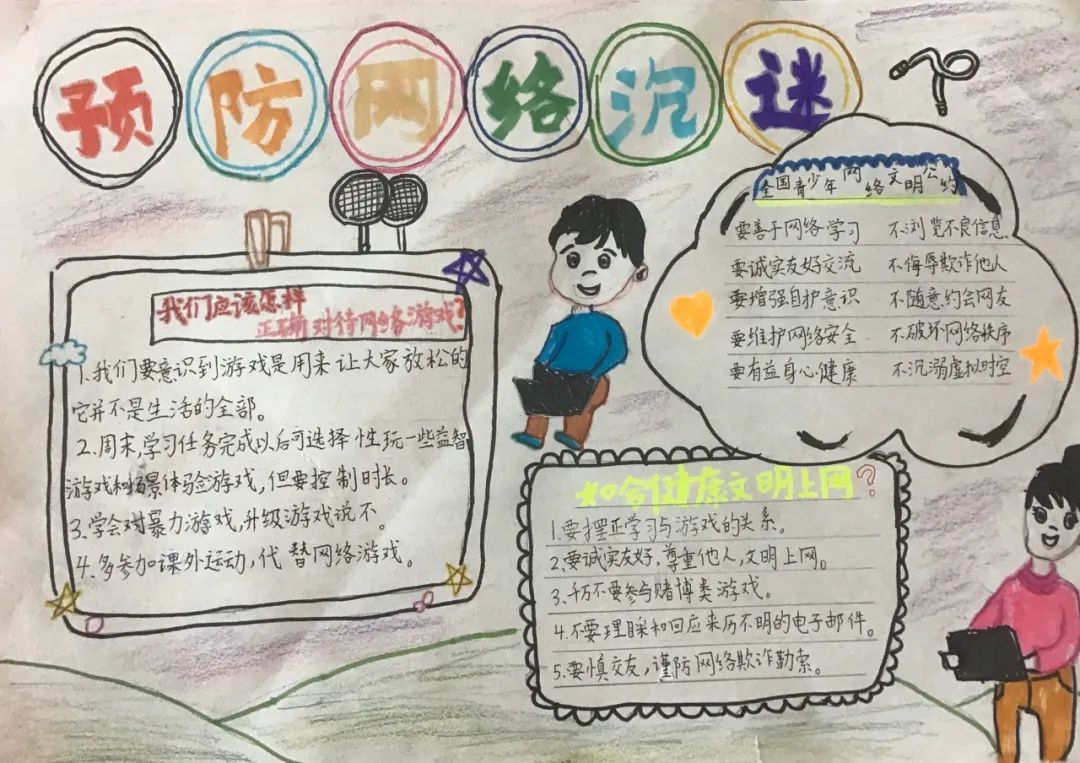 预防网络沉谜
我们应该怎样
正确对待网络游戏?
1.我们要意识到游戏是用来让大家放松的
它并不是生活的全部。
2.周末,学习任务完成以后可选择性玩一些益智
游戏和场景体验游戏,但要控制时长。
3.学会对暴力游戏,升级游戏说不。
4.多参加课外运动,代替网络游戏。
全国青少年网络文明公约
要善于网络学习 不浏览不良信息
要诚实友好交流 不侮辱欺诈他人
要增强自护意识 不随意约会网友
要维护网络安全 不破坏网络秩序
要有益身心健康 不沉溺虚拟时空
如何健康文明上网?
1.要摆正学习与游戏的关系。
2.要诚实友好,尊重他人,文明上网。
3.千万不要参与赌博类游戏。
4.不要理睬和回应来历不明的电子邮件。
5.要慎交友,谨防网络欺诈勒索。